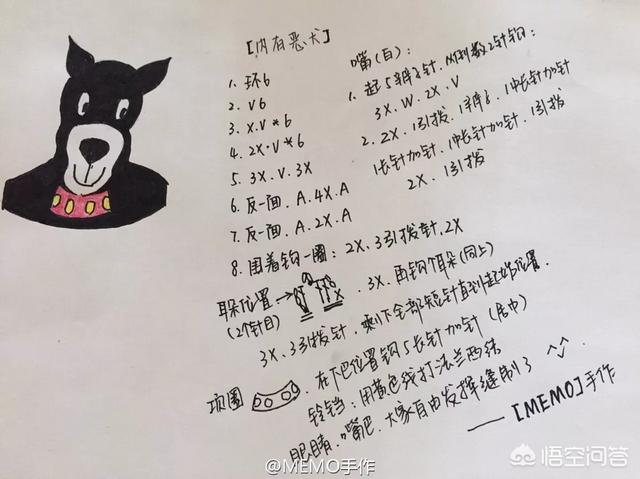 [内有恶犬]
1. 环6
2. V6
3. X.V*6
4. 2X.V*6
5. 3X.V.3X
6. 反一面.A.4X.A
7. 反一面.A.2X.A
8. 围着钩一圈:2X.3引拔针.2X
耳朵位置→
(2个针目)
.3X.再钩个耳朵(同上)
3X.3引拔针,剩下全部短针直到起始位置.
项圈
.在下巴位置钩5长针加针(居中)
铃铛:用黄色线打法兰西结
眼睛.嘴巴.大家自由发挥缝制了^_^
——[MEMO]手作
嘴(白):
1. 起5辫子针.从倒数2针钩:
3X.W.2X.V
2. 2X.1引拔.1辫子.1中长针加针
1长针加针.1中长针加针.1引拔
2X.1引拔
@MEMO手作
悟空问答